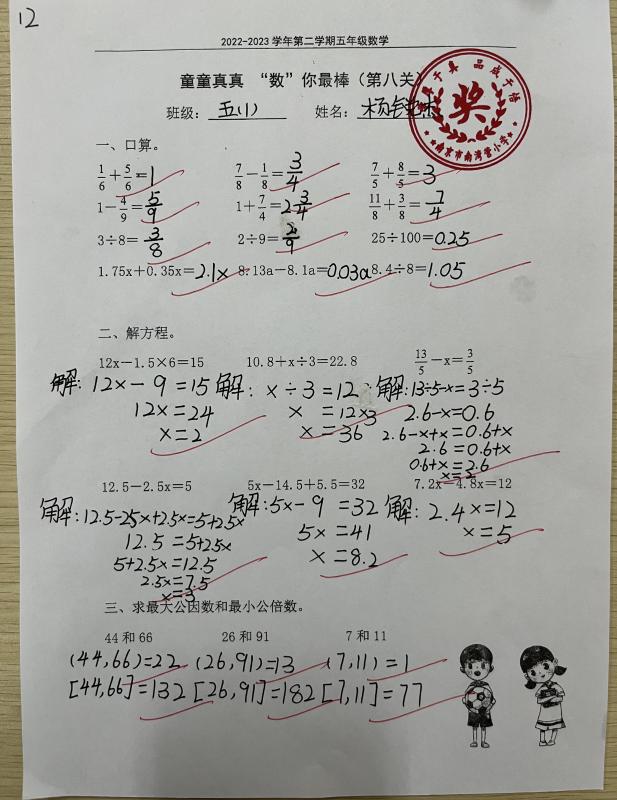 12
2022-2023 学年第二学期五年级数学
童童真真 “数”你最棒（第八关）
班级： 五(1) 姓名： 杨
奖
南京市南湾营小学
一、口算。
1/6+5/6=1 7/8－1/8=3/4 7/5+8/5=3
1－4/9=5/9 1+7/4=2 3/4 11/8+3/8=7/4
3÷8=3/8 2÷9=2/9 25÷100=0.25
1.75x+0.35x=2.1x 8.13a－8.1a=0.03a 8.4÷8=1.05
二、解方程。
12x－1.5×6=15 10.8+x÷3=22.8 13/5－x=3/5
解: 12x－9=15 解: x÷3=12 解: 13÷5-x=3÷5
12x=24 x=12×3 2.6-x=0.6
x=2 x=36 2.6-x+x=0.6+x
2.6=0.6+x
0.6+x=2.6
x=2
12.5－2.5x=5 5x－14.5+5.5=32 7.2x－4.8x=12
解: 12.5-2.5x+2.5x=5+2.5x 解: 5x－9=32 解: 2.4x=12
12.5=5+2.5x 5x=41 x=5
5+2.5x=12.5 x=8.2
2.5x=7.5
x=3
三、求最大公因数和最小公倍数。
44 和 66 26 和 91 7 和 11
(44,66)=22 (26,91)=13 (7,11)=1
[44,66]=132 [26,91]=182 [7,11]=77